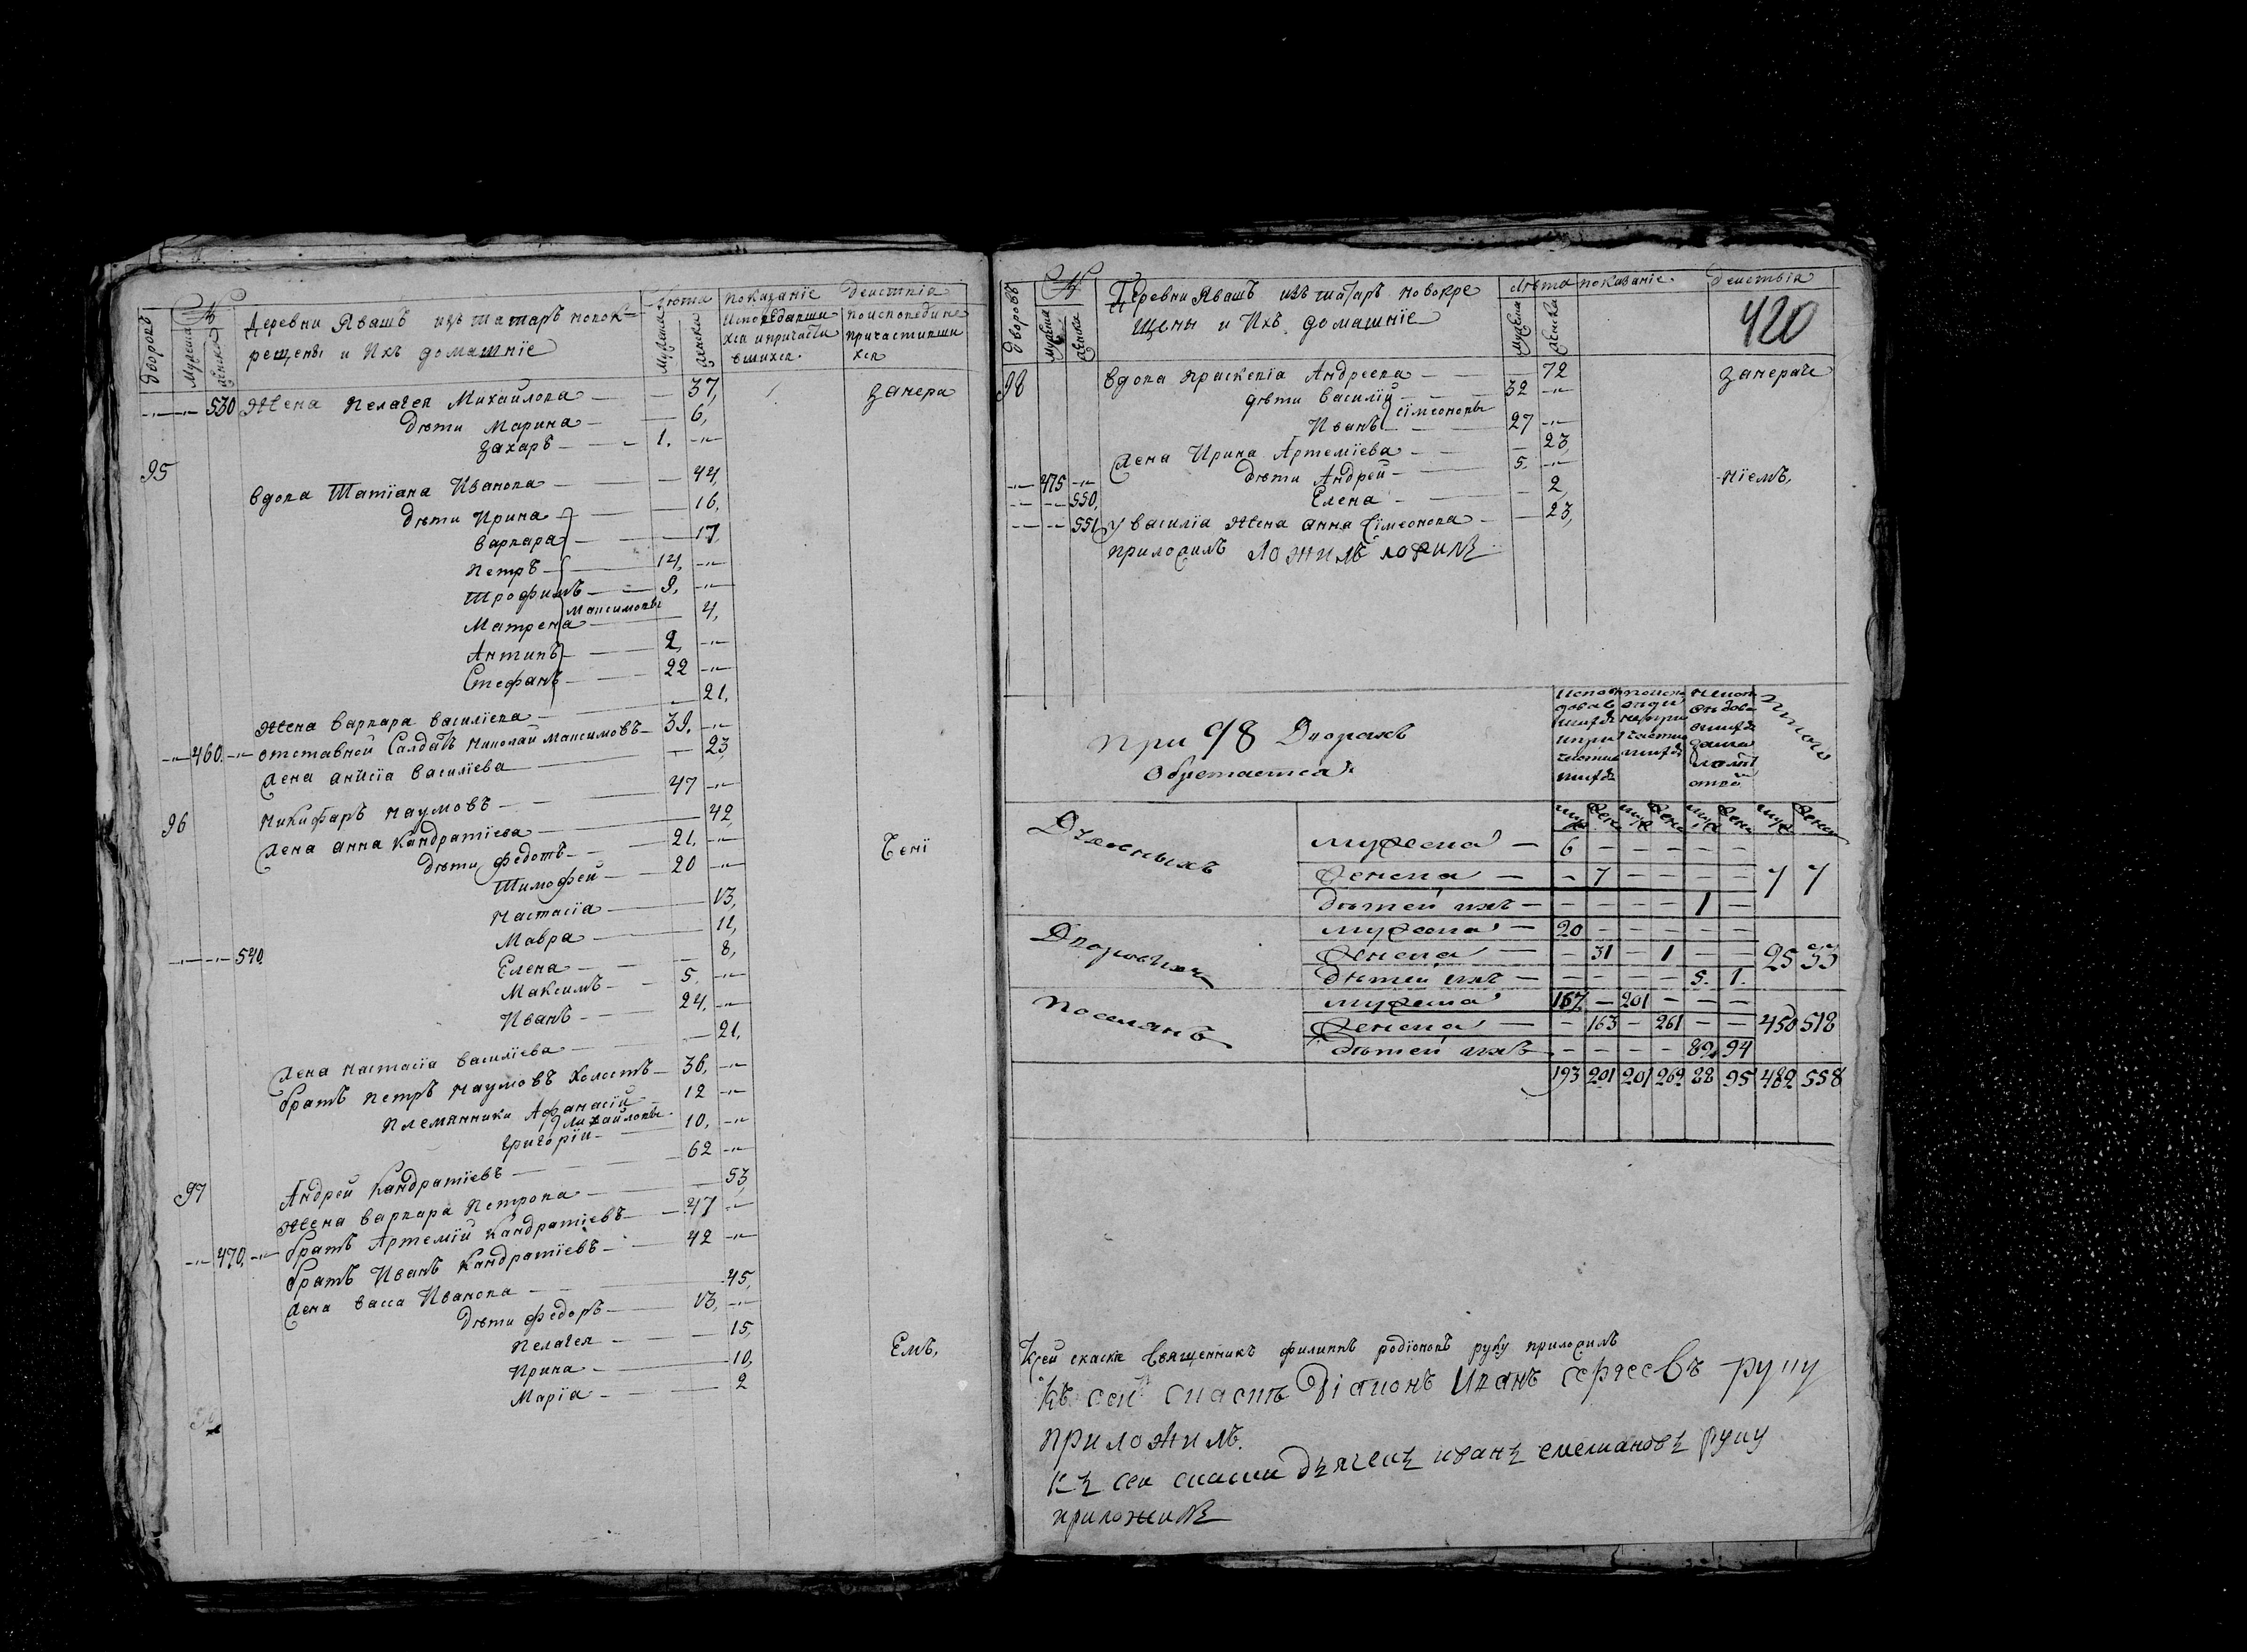 дворовъ № Деревни Явашъ изъ татаръ новок- Лѣта показанїе действїя
мужеска женска рещены и Ихъ домашнїе мужеска женска Исповедавши поисповедине
хся и причасти причаствши
вшихся. хся
-"- -"- 530 Жена Пелагея Михайлова — 37, занера
дѣти Марина — 6,
Захаръ — 1. -"-
95 вдова Татїана Иванова — 44,
дѣти Ирина — 16,
варвара — 17,
Петръ — 14, -"-
Трофимъ — 9, -"-
Максимовы
Матрена — 4,
Антипъ — 2, -"-
Стефанъ — 22 -"-
Жена варвара василїева — 21,
-"- 460. -"- отставной Салдатъ Николай Максимовъ — 39. -"-
жена анисїа василїева — 23,
96 Никифаръ Наумовъ — 47 -"-
жена анна Кандратїева — 42,
дѣти федотъ — 21, -"- ченї
Тимофей — 20 -"-
Настасїа — 13,
Мавра — 11,
-"- -"- 540. Елена — 8,
Максимъ — 5, -"-
Иванъ — 24, -"-
жена Настасїа василїева — 21,
братъ Петръ Наумовъ холостъ — 36, -"-
Племянники Афанасїй — 12 -"-
Михайловы
григорїи — 10, -"-
97 Андрей Кандратїевъ — 62 -"-
Жена варвара Петрова — 53,
-"- 470, -"- братъ Артемїй Кандратїевъ — 47 -"-
братъ Иванъ Кандратїевъ — 42 -"-
жена васса Иванова — 45,
дѣти федоръ — 13, -"-
Пелагея — 15,
Ирина — 10, Емъ,
Марїа — 2
дворовъ № Деревни Явашъ изъ татаръ новокре Лѣта показанїе. действїя
мужеска женска щены и Ихъ домашнїе мужеска женска 420
98 вдова Праскевїа Андреева — 72 занераче
дѣти василїй — 32 -"-
Сїмеоновы
Иванъ — 27 -"-
жена Ирина Артемїева — 23,
-"- 475 -"- дѣти Андрей — 5, -"- нїемъ,
-"- -"- 550, Елена — 2,
-"- -"- 551 у василїа Жена анна Сїмеонова — 23,
приложилъ ложилъ ложилъ
При 98 Дворахъ
Обретается
Итого
муж жен муж жен муж жен муж жен
Духовныхъ мужеска — 6 — — — — —
женска — — 7 — — — — 7 7
дѣтей ихъ — — — — — 1 —
мужеска — 20 — — — — —
женска — — 31 — 1 — — 25 33
дѣтей ихъ — — — — — 5. 1.
Поселянъ мужеска 167 — 201 — — —
женска — — 163 — 261 — — 450 518
дѣтей ихъ — — — — 82, 94
193 201 201 262 88 95 482 558
К сей скаске Священникъ филиппъ родїоновъ руку приложилъ
Къ сей скаске Дїаконъ Иванъ сергеевъ руку
приложилъ.
Къ сей скаски дьячекъ иванъ емельяновъ руку
приложилъ